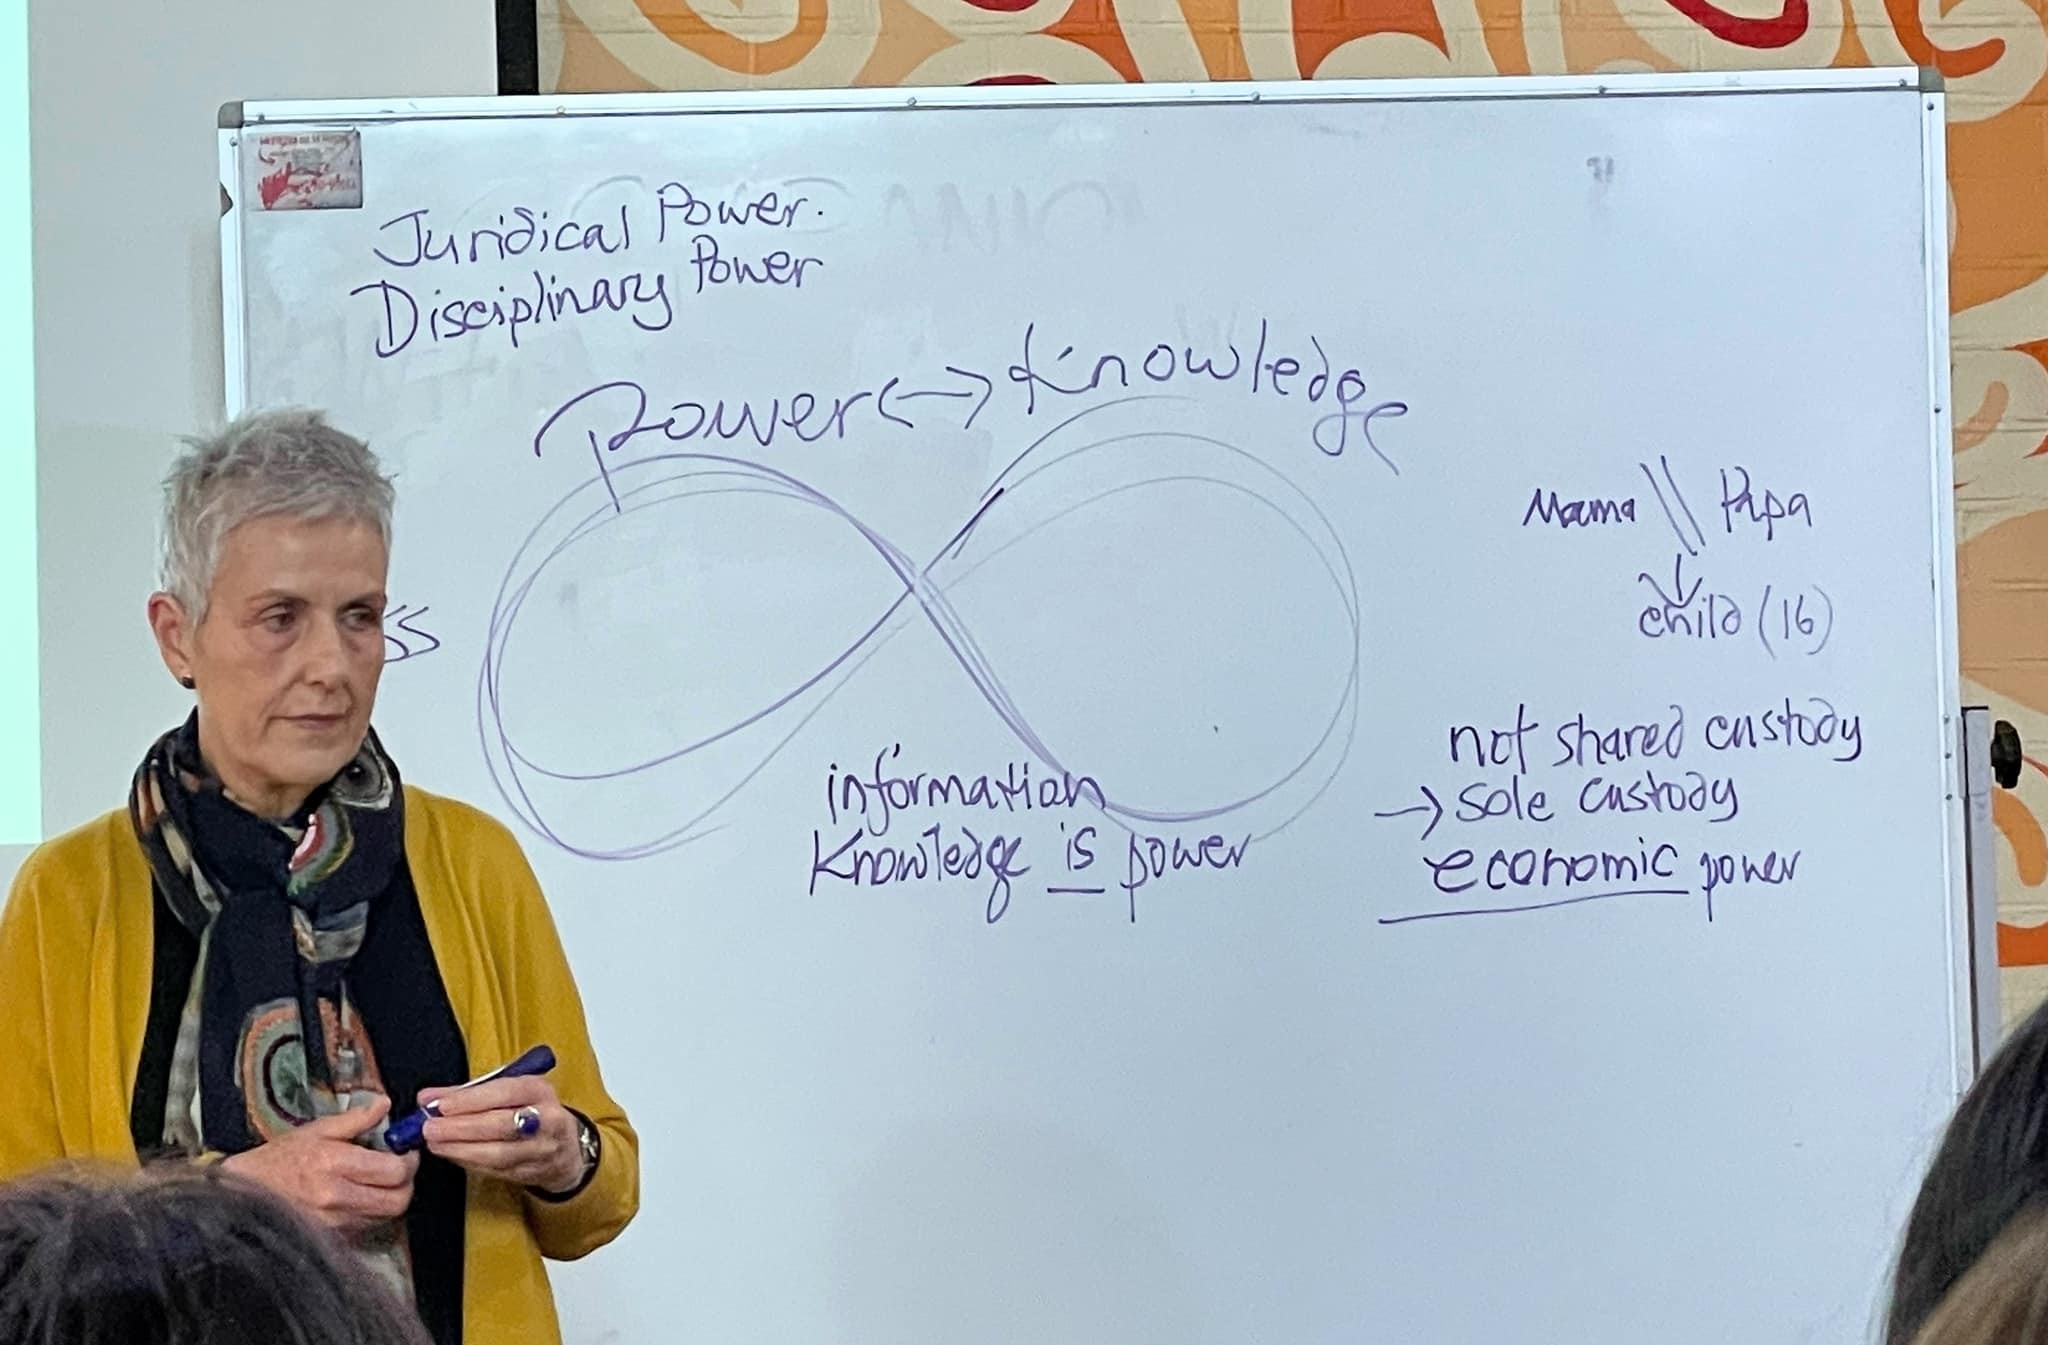 Juridical Power.
Disciplinary Power
Power ↔ Knowledge
ss
information
Knowledge is power
Mama \\ Papa
child (16)
not shared custody
→ sole custody
economic power